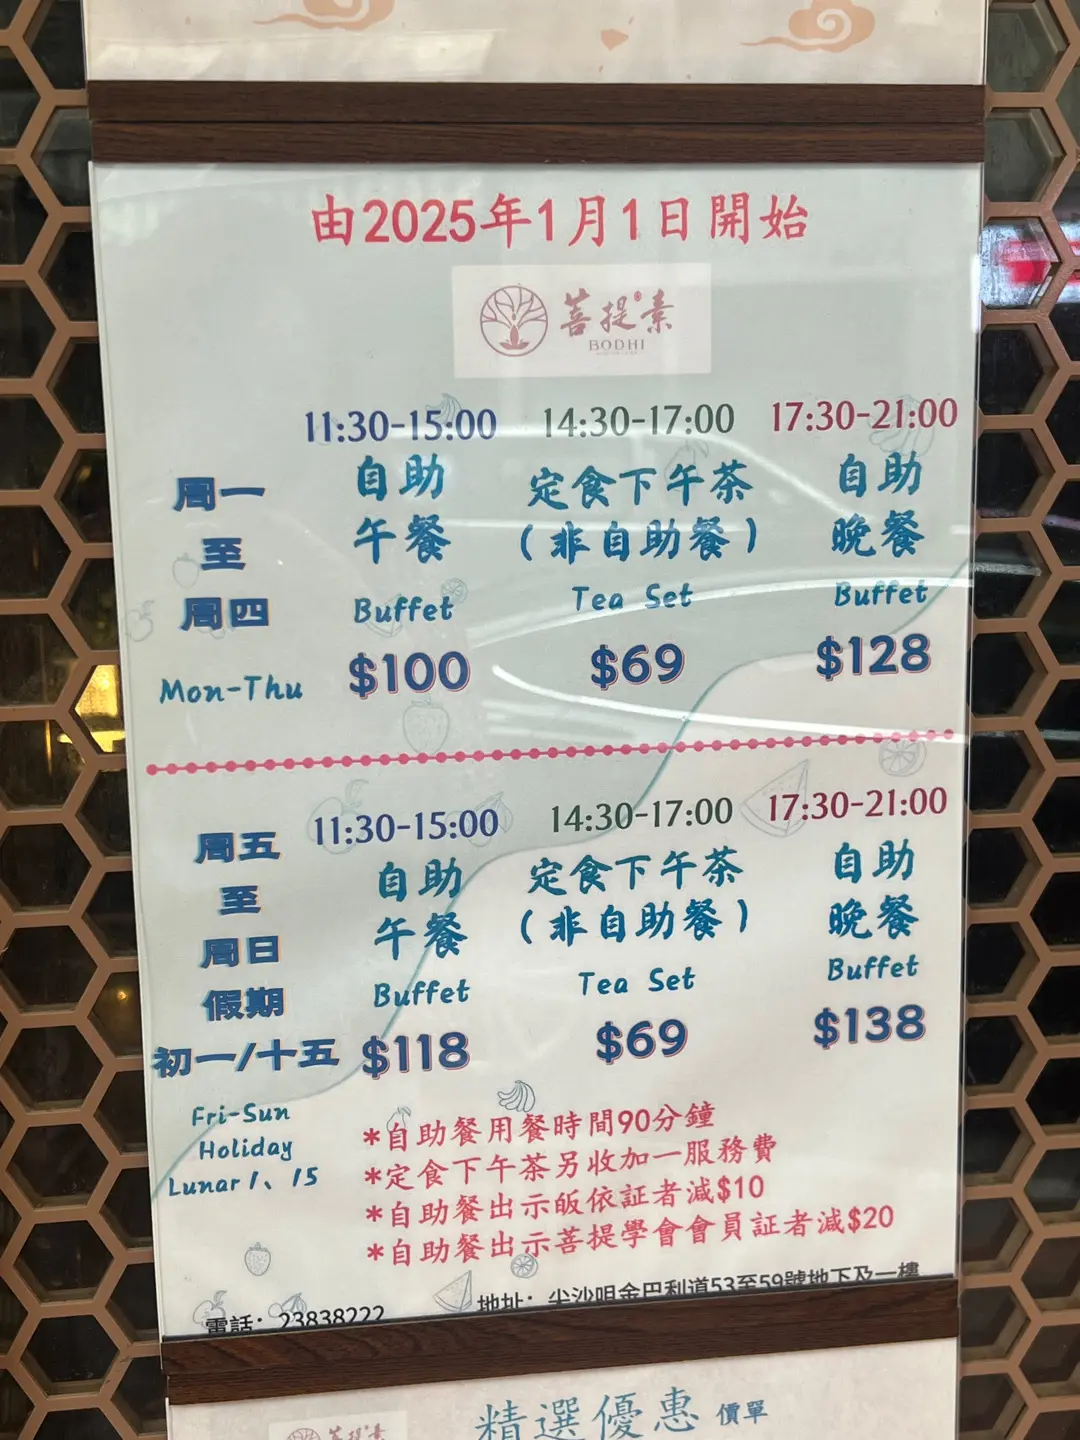 由2025年1月1日開始
菩提素
BODHI
11:30-15:00 14:30-17:00 17:30-21:00
周一
至
周四
Mon-Thu
自助
午餐
Buffet
$100
定食下午茶
(非自助餐)
Tea Set
$69
自助
晚餐
Buffet
$128
11:30-15:00 14:30-17:00 17:30-21:00
周五
至
周日
假期
初一/十五
Fri-Sun
Holiday
Lunar 1、15
自助
午餐
Buffet
$118
定食下午茶
(非自助餐)
Tea Set
$69
自助
晚餐
Buffet
$138
*自助餐用餐時間90分鐘
*定食下午茶另收加一服務費
*自助餐出示皈依証者減$10
*自助餐出示菩提學會會員証者減$20
電話：23838222
地址：尖沙咀金巴利道53至59號地下及一樓
精選優惠 價單
菩提素